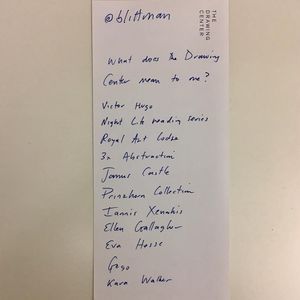 @blittman
THE
DRAWING
CENTER
What does the Drawing
Center mean to me?
Victor Hugo
Night Life reading series
Royal Art Lodge
3x Abstraction
James Castle
Prinzhorn Collection
Iannis Xenakis
Ellen Gallagher
Eva Hesse
Gego
Kara Walker